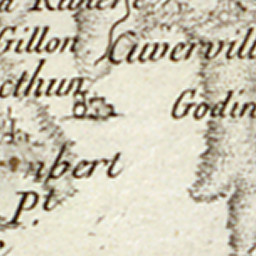 Gillon
Cuvervill
cthun
Godin
nbert
pt